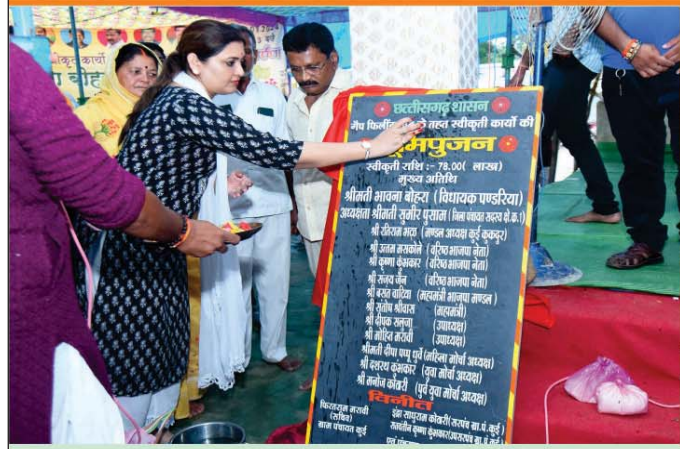 कुल कार्यो
छत्तीसगढ़ शासन
गैप फिलिंग तहत स्वीकृती कार्यो की
भूमिपुजन
स्वीकृती राशि :- 78.00 ( लाख )
मुख्य अतिथि
श्रीमती भावना बोहरा ( विधायक पण्डरिया )
अध्यक्षता श्रीमती सुमीर पुसाम ( जिला पंचायत सदस्य क्षे.क्र.1 )
श्री रतिराम भट्ट ( मण्डल अध्यक्ष कुई कुकदुर )
श्री उत्तम मरकोले ( वरिष्ठ भाजपा नेता )
श्री कृष्णा कुंभकार ( वरिष्ठ भाजपा नेता )
श्री संजय जैन ( वरिष्ठ भाजपा नेता )
श्री बसंत वाटिया ( महामंत्री भाजपा मण्डल )
श्री संतोष श्रीवास ( महामंत्री )
श्री दीपक सलूजा ( उपाध्यक्ष )
श्री मोहित मरावी ( उपाध्यक्ष )
श्रीमती दीपा पप्पू धुर्वे ( महिला मोर्चा अध्यक्ष )
श्री दशरथ कुंभकार ( युवा मोर्चा अध्यक्ष )
श्री मनोज कोठारी ( पुर्व युवा मोर्चा अध्यक्ष )
विनीत
फिराहुराम मरावी
( सचिव )
ग्राम पंचायत कुई
इंद्रा साधुराम कोठारी ( सरपंच ग्रा.पं. कुई )
कृष्णा कुंभकार ( उपसरपंच ग्रा.पं. कुई )